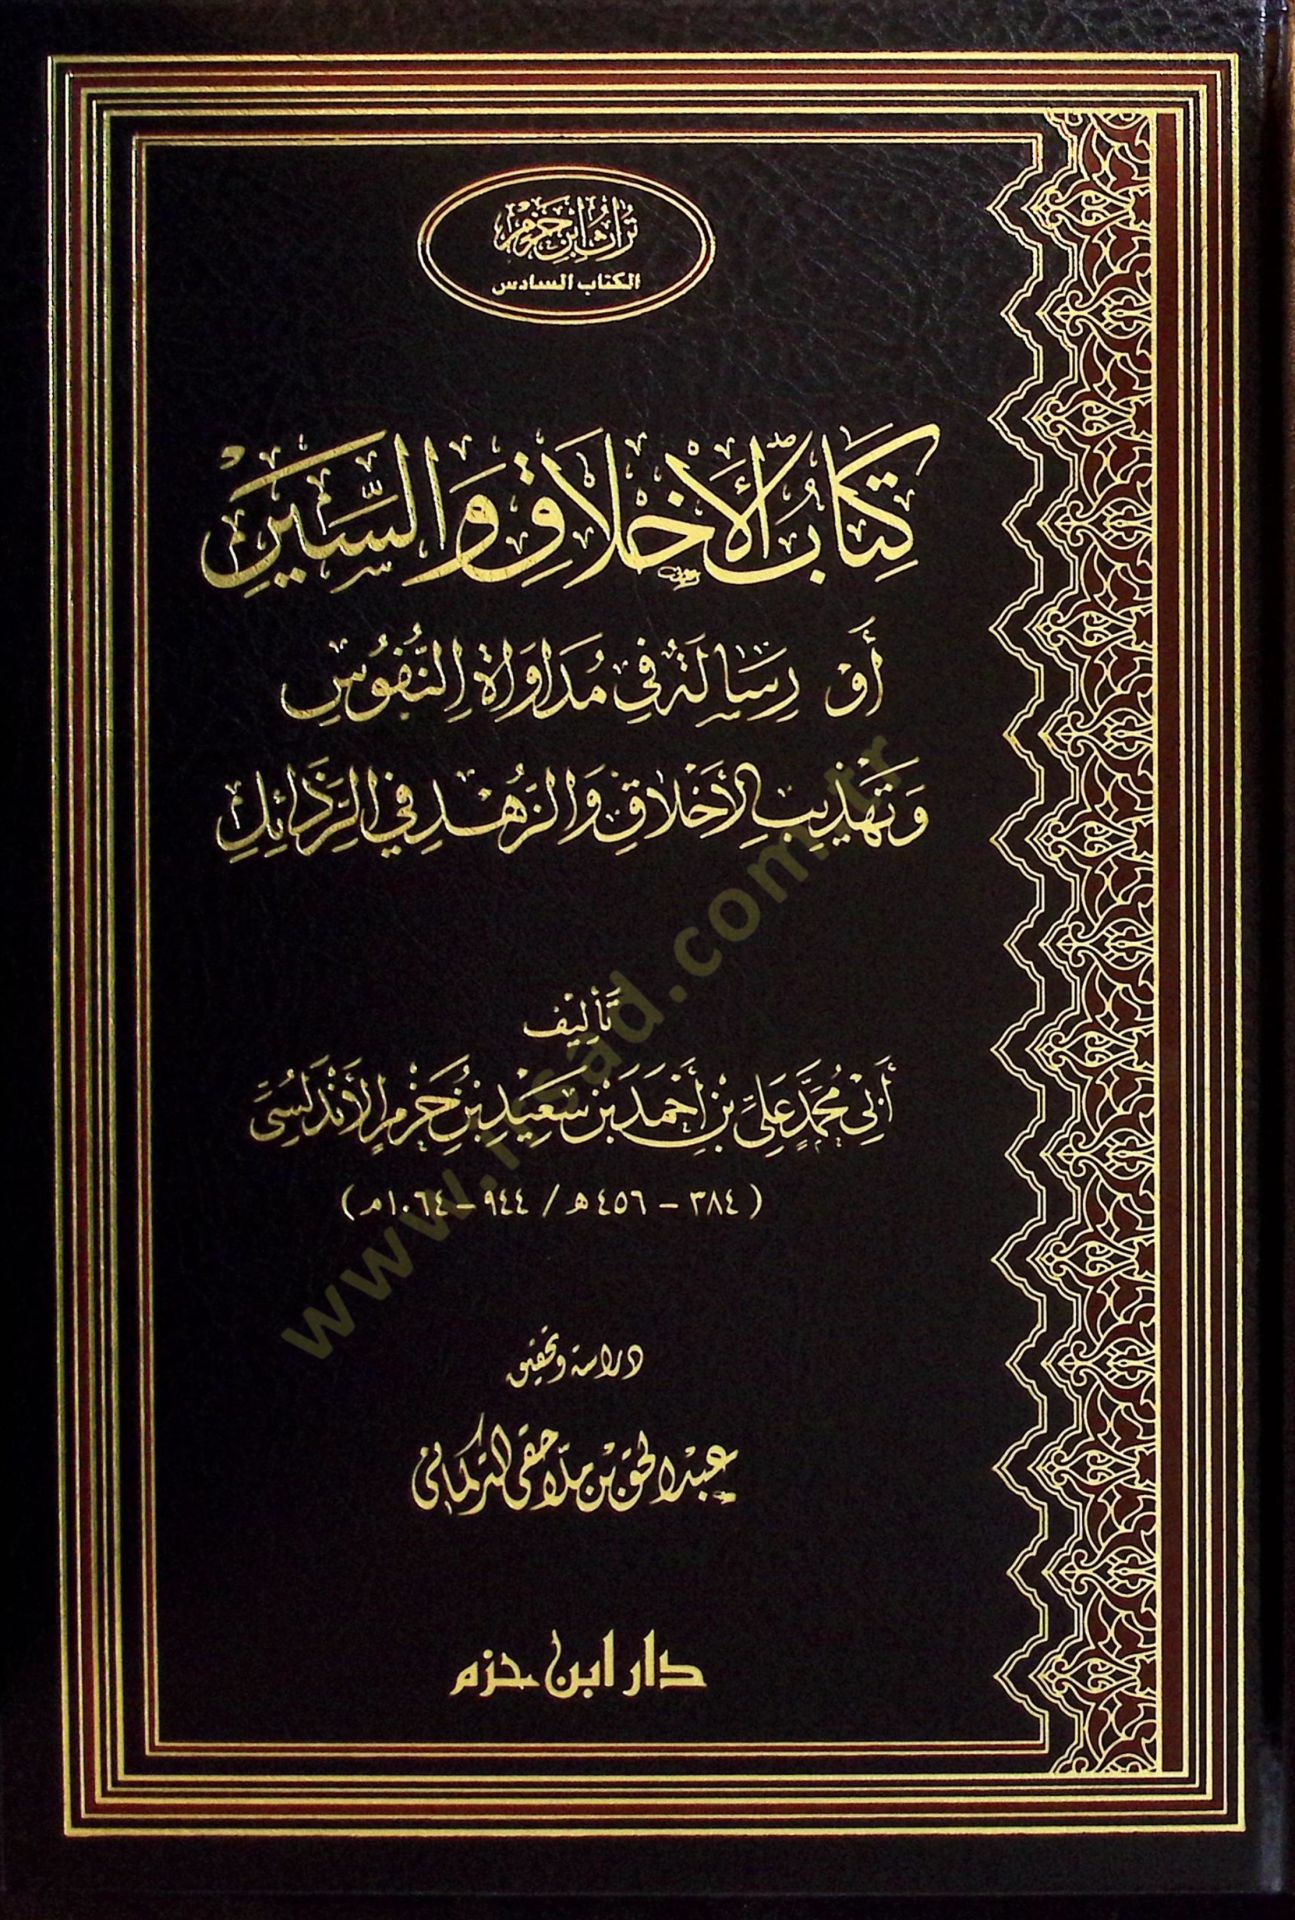 تُراثُ ابْنِ حَزْمٍ
الكتاب السادس
كِتَابُ الأَخْلَاقِ وَالسِّيَرِ
أَوْ رِسَالَةٌ فِي مُدَاوَاةِ النُّفُوسِ
وَتَهْذِيبِ الأَخْلَاقِ وَالزُّهْدِ فِي الرَّذَائِلِ
تَأْلِيف
أَبِي مُحَمَّدٍ عَلِيِّ بْنِ أَحْمَدَ بْنِ سَعِيدِ بْنِ حَزْمٍ الأَنْدَلُسِيِّ
(٣٨٤ - ٤٥٦ هـ / ٩٤٤ - ١٠٦٤ م)
دراسة وتحقيق
عبد الحق بن ملا حقي التركماني
دار ابن حزم
www.irsad.com.tr